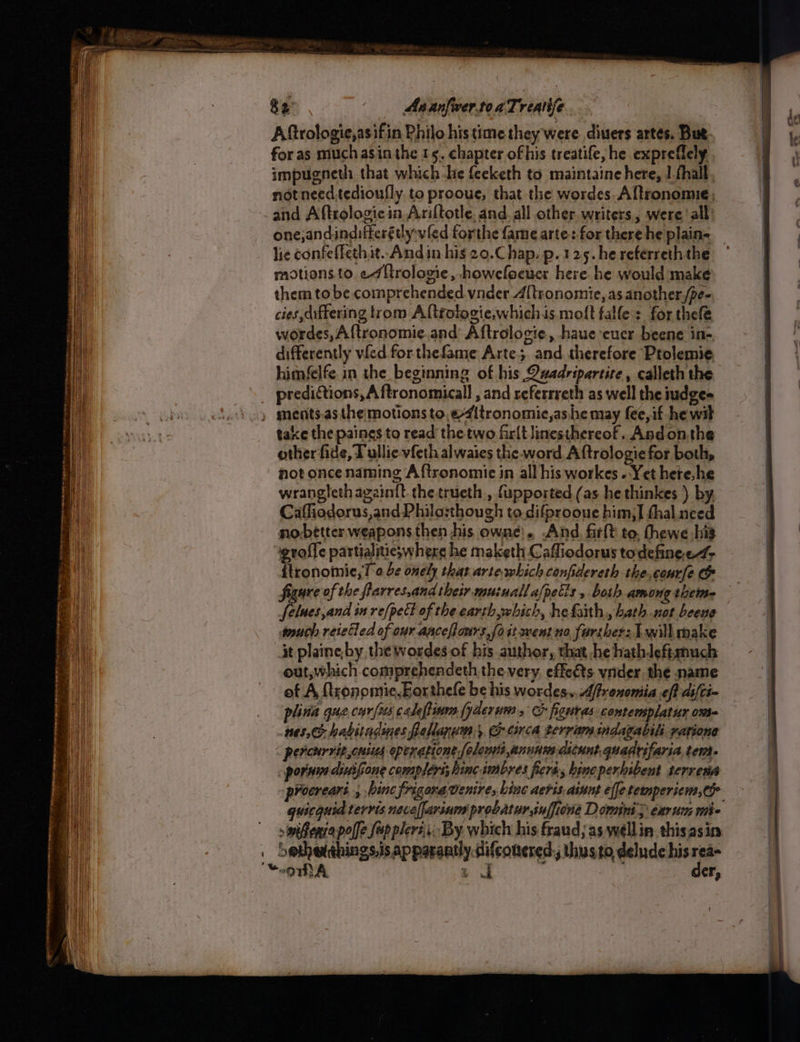 82 An answer to a Treatise
Astrologie, as if in Philo his time they were diuers artes. But
for as much as in the 15. chapter of his treatise, he expressely
impugneth that which he seeketh to maintaine here, I shall
not need tediously to prooue, that the wordes Astronomie
and Astrologie in Aristotle, and all other writers, were all
one, and indifferẽtly vsed for the same arte: for there he plain-
lie confesseth it. And in his 20. Chap. p. 125. he referreth the
motions to Astrologie, howsoeuer here he would make
them to be comprehended vnder Astronomie, as another spe-
cies, differing from Astrologie, which is most false: for these
wordes, Astronomie and Astrologie, haue euer beene in-
differently vsed for the same Arte; and therefore Ptolemie
himselfe in the beginning of his Quadripartite, calleth the
predictions, Astronomicall, and referreth as well the iudge-
ments as the motions to Astronomie, as he may see, if he wil
take the paines to read the two first lines thereof. And on the
other side, Tullie vseth alwaies the word Astrologie for both,
not once naming Astronomie in all his workes. Yet here, he
wrangleth against the trueth, supported (as he thinkes) by
Cassiodorus, and Philo: though to disprooue him, I shal need
no better weapons then his owne. And first to shewe his
grosse partialitie, where he maketh Cassiodorus to define A-
stronomie, To be onely that arte which considereth the course &
figure of the starres, and their mutuall aspects, both among them-
selues, and in respect of the earth, which, he saith, hath not beene
much reiected of our ancestours, so it went no further: I will make
it plaine, by the wordes of his author, that he hath left much
out, which comprehendeth the very effects vnder the name
of Astronomie. For these be his wordes, Astronomia est disci-
plina quæ cursus cælestium syderum, & figuras contemplatur om-
nes, & habitudines stellarum, & circa terram indagabili ratione
percurrit, cuius operatione solemni, annum dicunt quadrifaria tem-
porum diuisione compleri, hinc imbres fieri, hinc perhibent terrena
procreari, hinc frigora venire, hinc aeris aiunt esse temperiem, &
quicquid terris necessarium probatur, iussione Domini, earum mi-
nisteria posse suppleri. By which his fraud, as well in this as in
other things, is apparantly discouered, thus to delude his rea-
der,